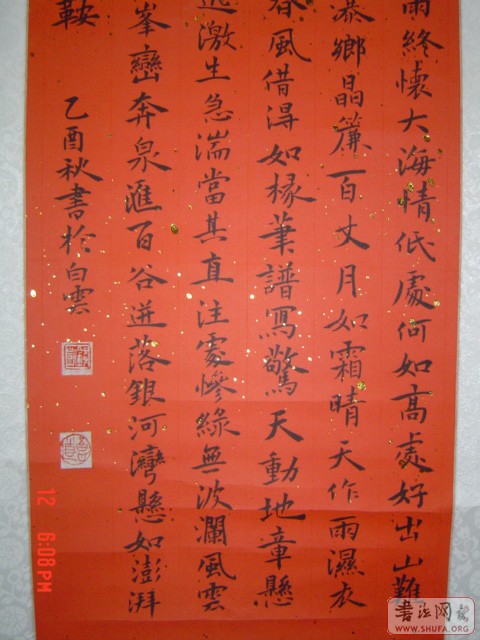 雨終懷大海情低處何如高處好出山難
恭鄉晶簾百丈月如霜晴天作雨濕衣
春風借得如椽筆譜寫驚天動地章懸
激生急湍當其直注處慘綠無波瀾風雲
峯巒奔泉滙百谷迸落銀河灣懸如澎湃
鞍
乙酉秋書於白雲
12 6:08PM
書法网
WWW.SHUFA.ORG